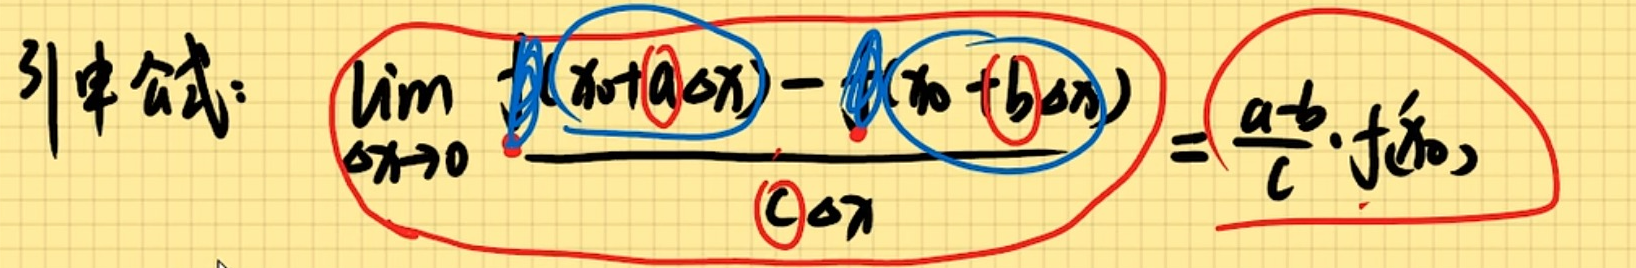 引申公式: lim Δx→0 f(x₀+aΔx) - f(x₀+bΔx) / cΔx = a-b/c · f'(x₀)